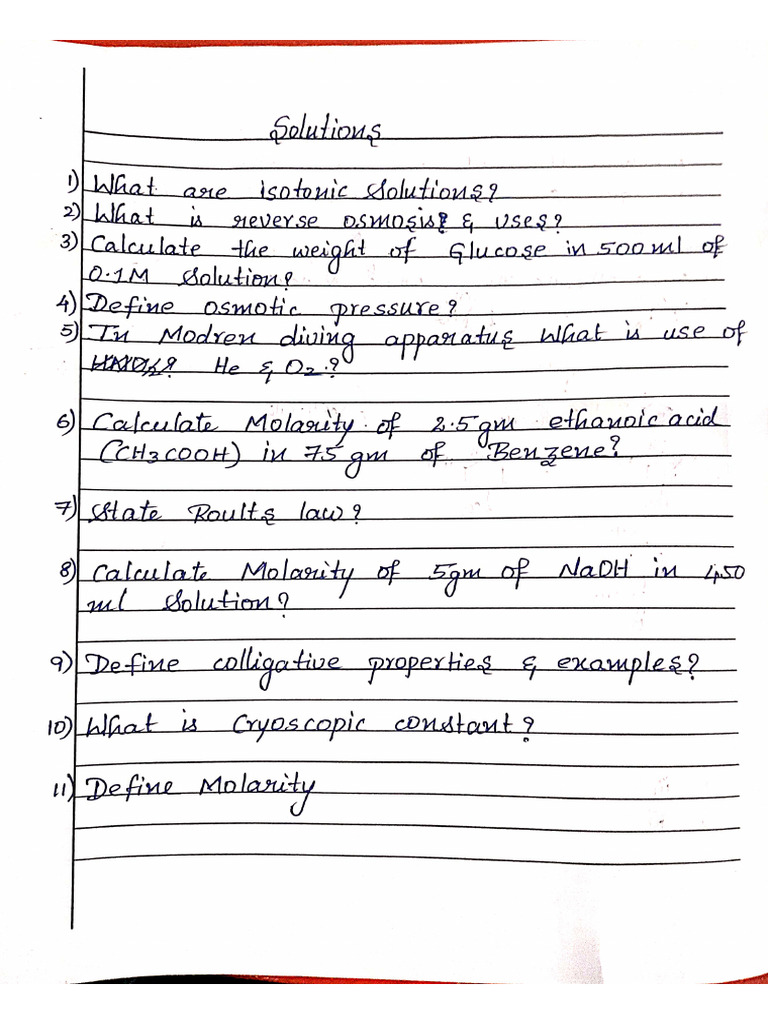 Solutions
1) What are isotonic solutions?
2) What is reverse osmosis & uses?
3) Calculate the weight of Glucose in 500 ml of
0.1M solution?
4) Define osmotic pressure?
5) In Modren diving apparatus what is use of
He & O2.?
6) Calculate Molarity of 2.5gm ethanoic acid
(CH3COOH) in 75gm of Benzene?
7) State Roults law?
8) Calculate Molarity of 5gm of NaOH in 450
ml solution?
9) Define colligative properties & examples?
10) What is Cryoscopic constant?
11) Define Molarity